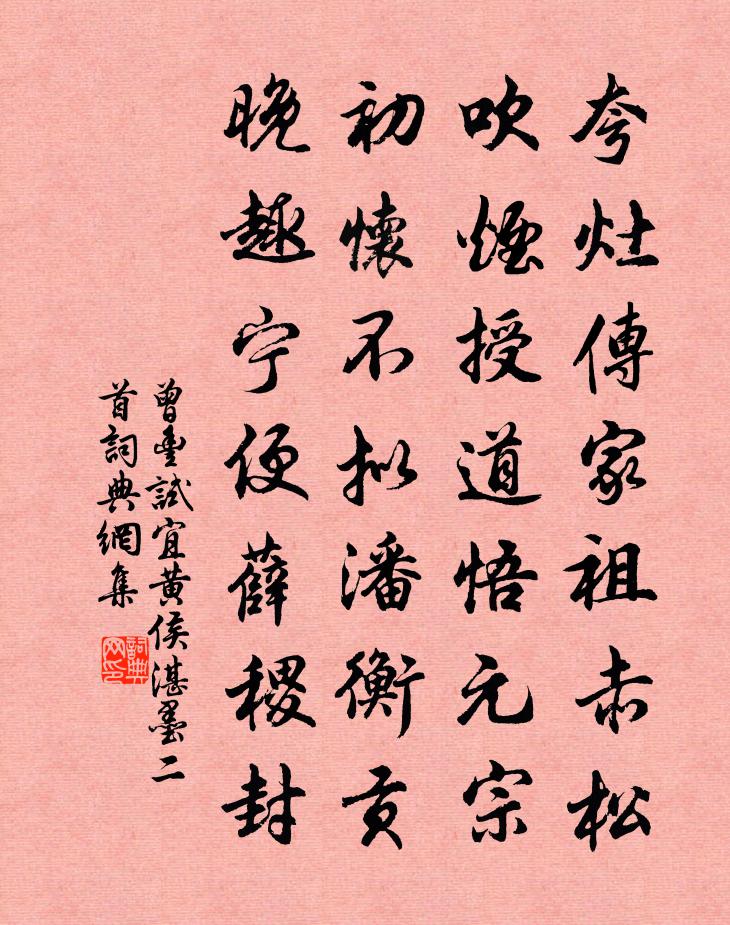 夸灶傳家祖赤松
吹煙授道悟元宗
初懷不拟潘衡貢
晚趣宁便薛稷封
曾豐試宜黄侯湛墨二
首詞典網集
詞典
网印